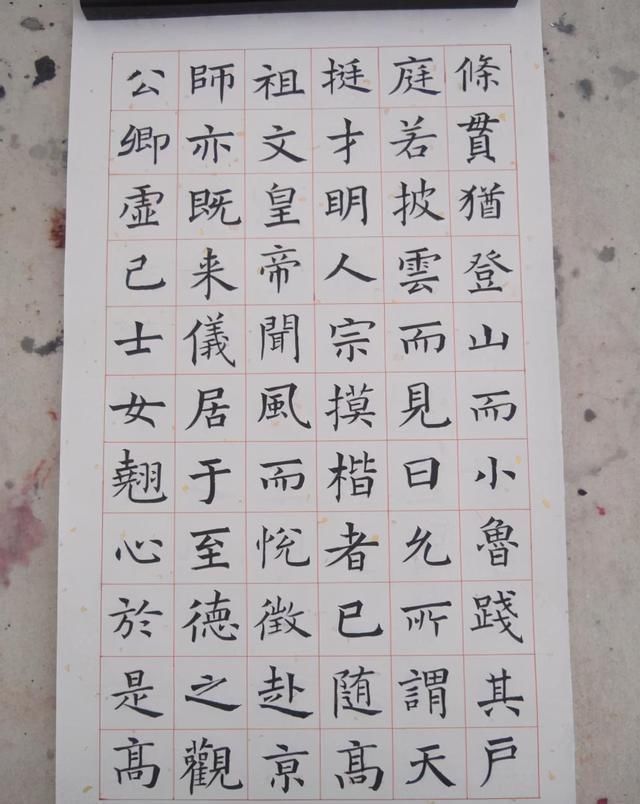 條貫猶登山而小魯踐其戶
庭若披雲而見日允所謂天
挺才明人宗摸楷者已随髙
祖文皇帝聞風而悅徵赴亰
師亦既来儀居于至德之觀
公卿虛己士女翹心於是髙